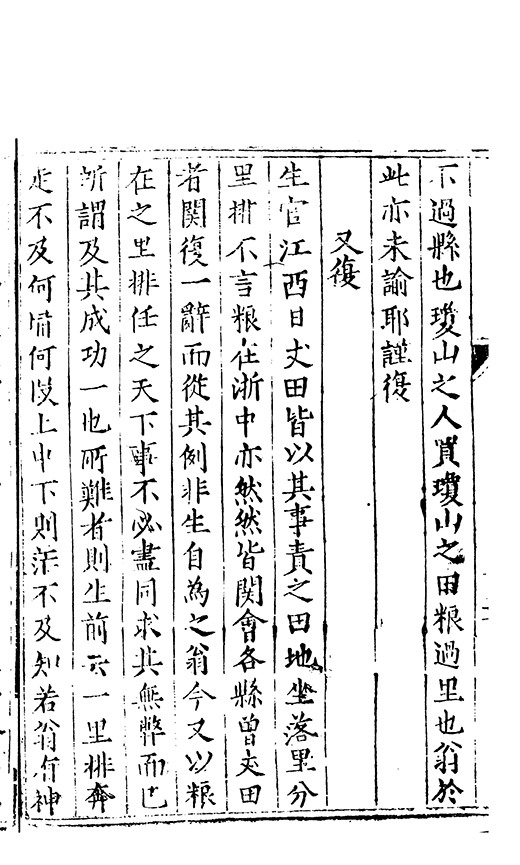 不過縣也瓊山之人買瓊山之田粮過里也翁於
此亦未諭耶謹復
又復
生官江西日丈田皆以其事責之田地坐落里分
里排不言粮在浙中亦然然皆関會各縣曾丈田
者関復一辭而從其例非生自為之翁今又以粮
在之里排任之天下事不必盡同求其無弊而已
所謂及其成功一也所難者則生前云一里排奔
走不及何啃何段上中下則茫不及知若翁有神